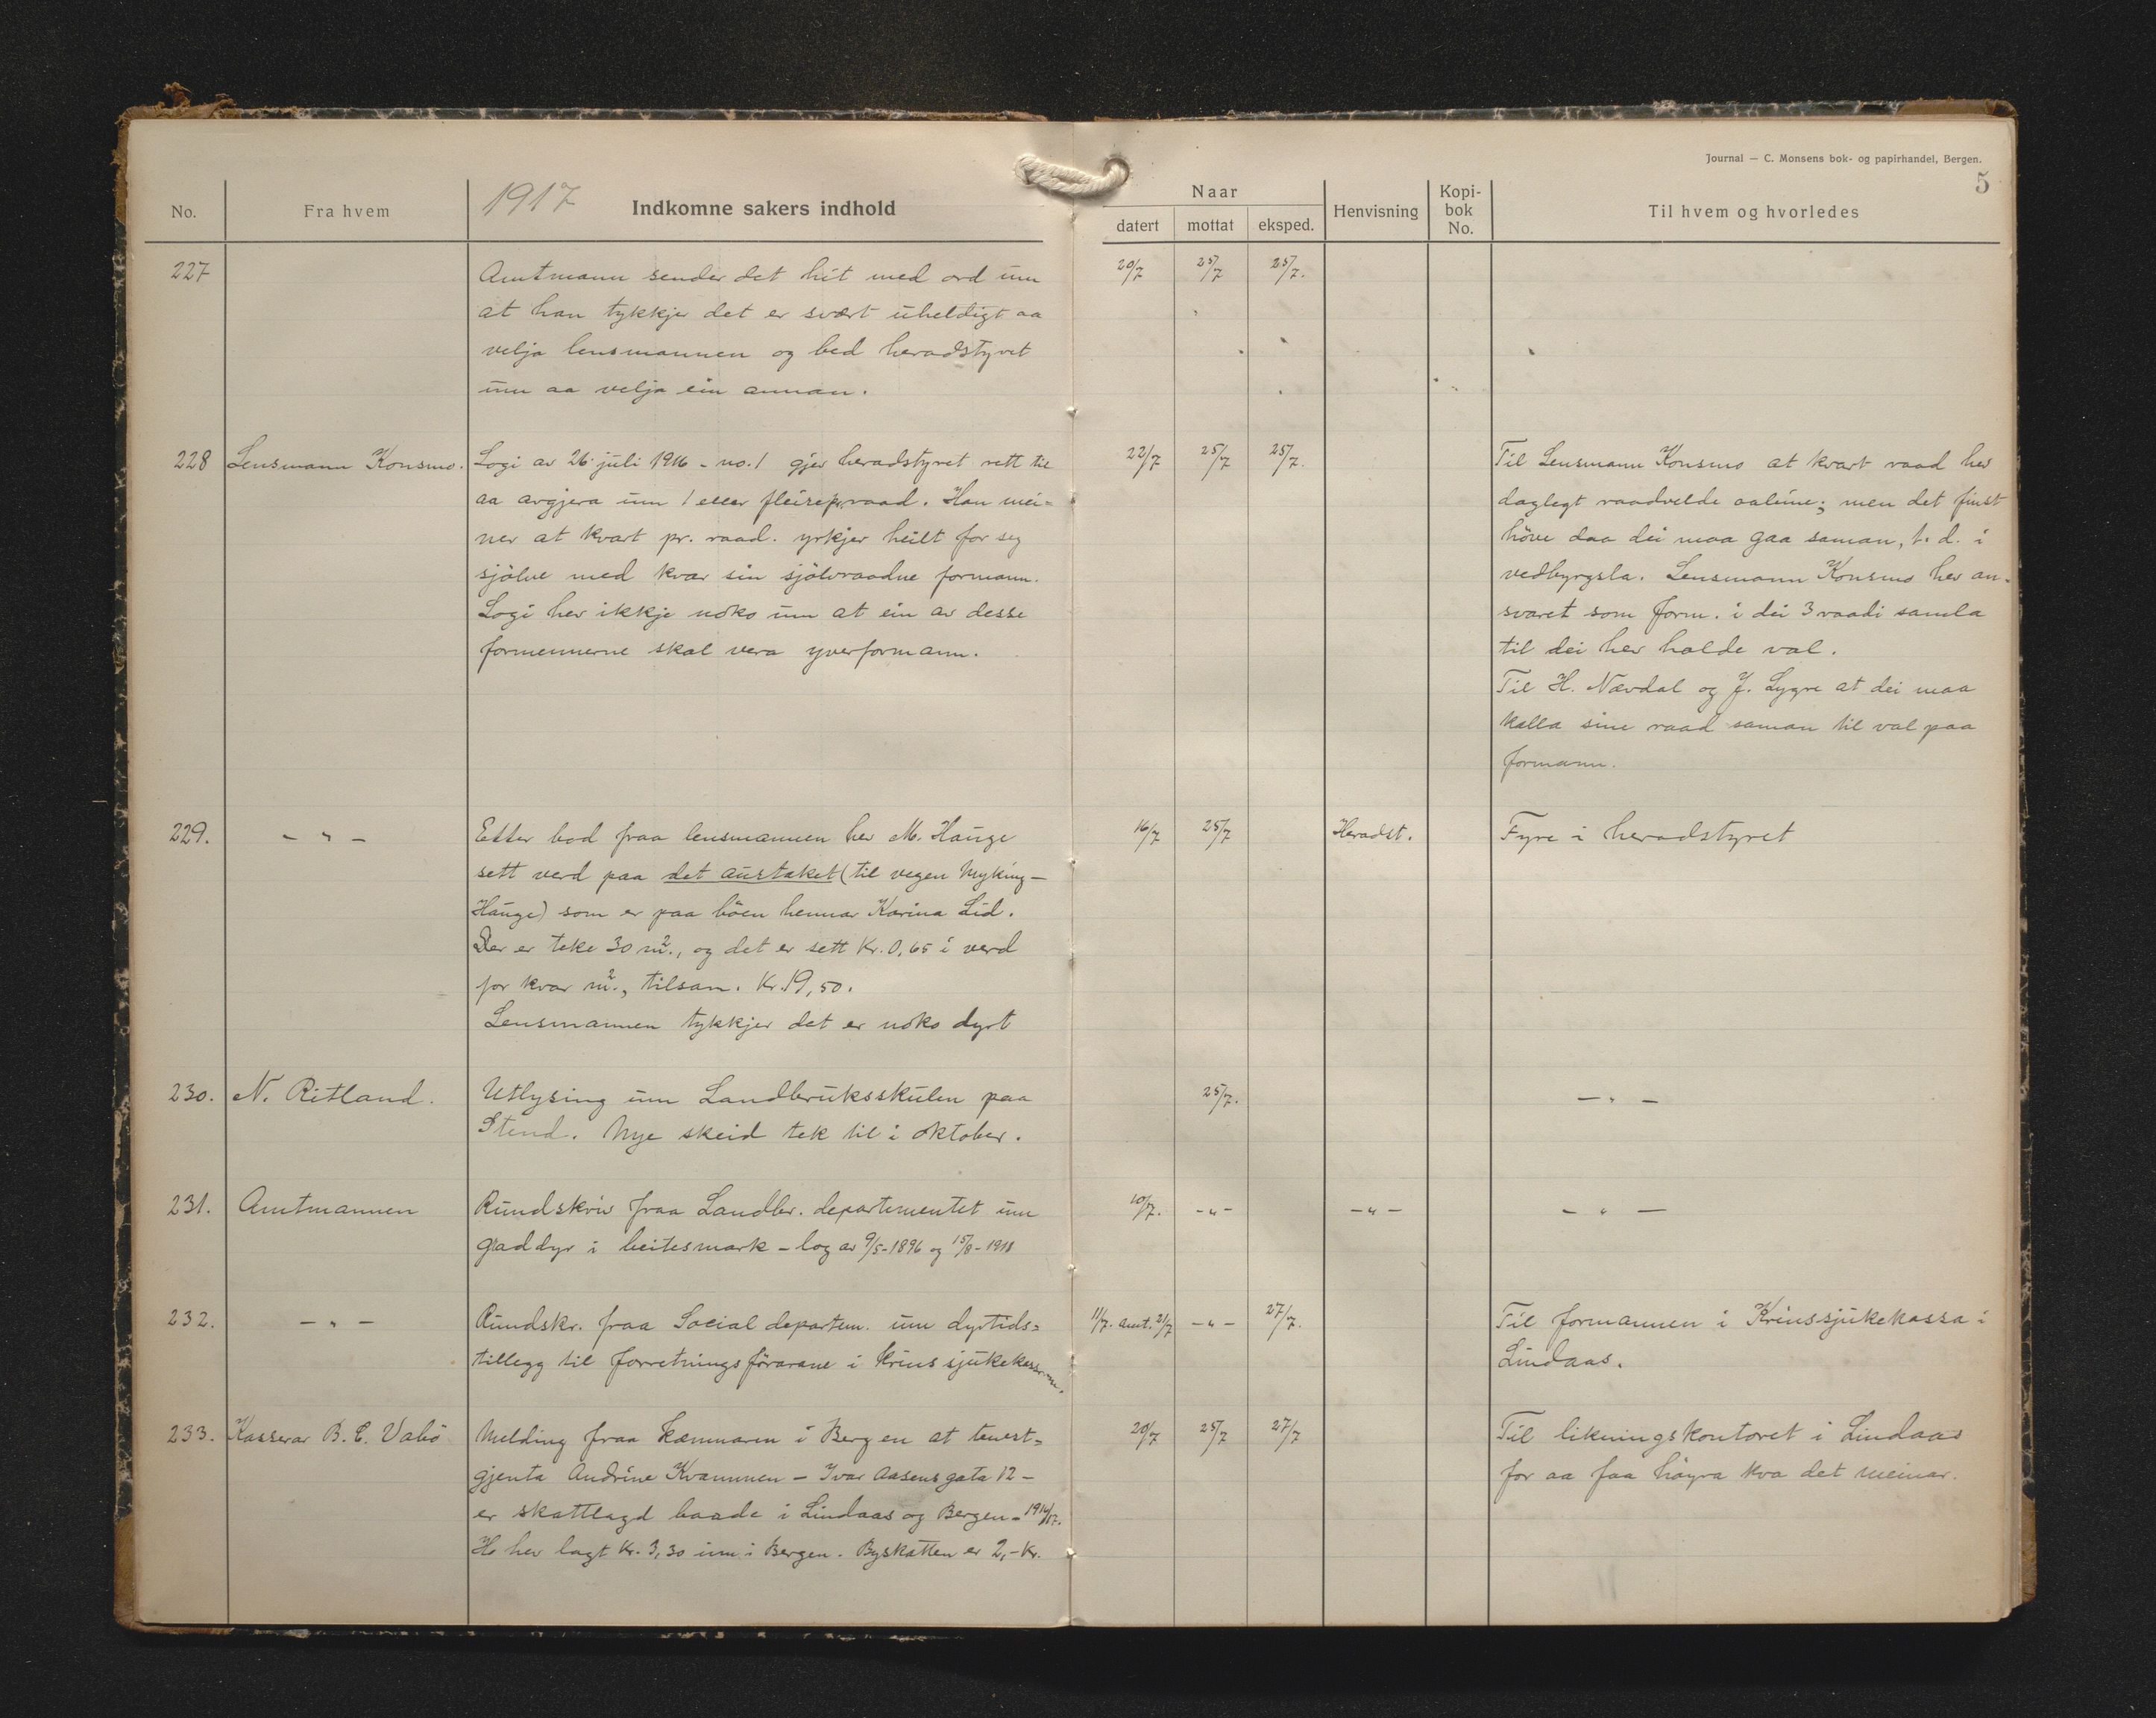 Journal — C. Monsens bok- og papirhandel, Bergen.
5
No.
Fra hvem
1917 Indkomne sakers indhold
Naar
datert
mottat
eksped.
Henvisning
Kopi-
bok
No.
Til hvem og hvorledes
227
Amtmann sender det hit med ord um
at han tykkje det er svært uheldigt aa
velja lensmannen og bed heradstyret
um aa velja ein annan.
20/7 25/7 25/7.
228 Lensmann Konsmo.
Logi av 26. juli 1916 - no. 1 gjev heradstyret rett til
aa avgjera um 1 eller fleire pr. raad. Han mei=
ner at kvart pr. raad. yrkjer heilt for seg
sjölve med kvar sin sjölvraadne formann.
Logi hev ikkje noko um at ein av desse
formennerne skal vera yverformann.
22/7 25/7 25/7.
Til Lensmann Konsmo at kvart raad hev
daglegt raadvelde aaleine; men det finst
höve daa dei maa gaa saman, t. d. i
vedbyrgsla. Lensmann Konsmo hev an-
svaret som form. i dei 3 raadi samla
til dei hev halde val.
Til H. Nævdal og J. Lygre at dei maa
kalla sine raad saman til val paa
formann.
229. - " -
Etter bod fraa lensmannen hev M. Hauge
sett verd paa det austaket (til vegen Myking -
Hauge) som er paa böen hennar Karina Lid.
Der er teke 30 m2., og det er sett Kr. 0,65 i verd
for kvar m2., tilsam. Kr. 19,50.
Lensmannen tykkjer det er noko dyrt
16/7 25/7 Heradst.
Fyre i heradstyret
230. N. Ritland.
Utlysing um Landbruksskulen paa
Stend. Nye skeid tek til i oktober.
25/7.
- " -
231. Amtmannen
Rundskriv fraa Landbr. departementet um
graddyr i beitesmark - log av 9/5-1896 og 15/8-1918
10/7. -"- -"-
- " -
232. - " -
Rundskr. fraa Social departem. um dyrtids=
tillegg til forretningsförarane i krinssjukekassorne.
11/7. amt. 21/7 -"- 27/7.
Til formannen i Krinssjukekassa i
Lindaas.
233. Kasserar B. C. Vabö
Melding fraa kæmnaren i Bergen at tenest=
gjenta Andrine Kvammen - Ivar Aasens gata 12 -
er skattlagd baade i Lindaas og Bergen - 1916/17.
Ho hev lagt Kr. 3,30 inn i Bergen. Byskatten er 2,- Kr.
20/7 25/7 27/7
Til likningskontoret i Lindaas
for aa faa höyra kva det meinar.